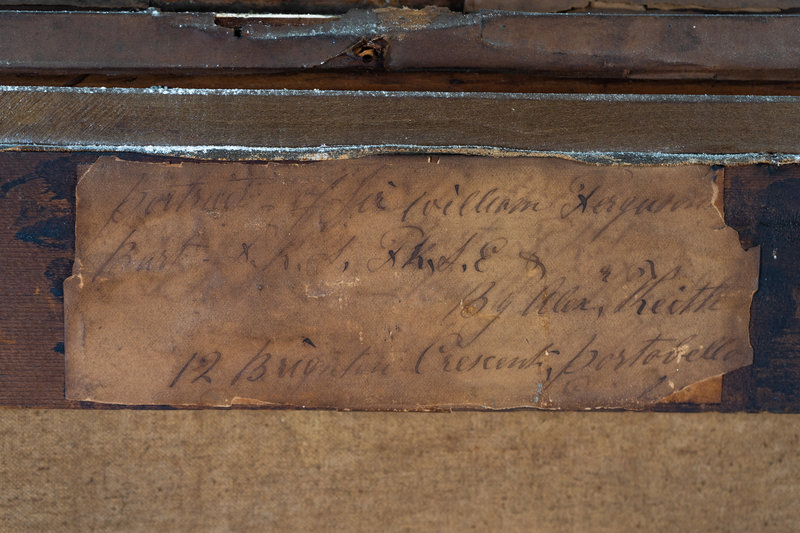 Portrait of Sir William Ferguson
Bart. F.R.S., F.R.S.E &
By Alex, Keith
12 Brighton Crescent, Portobello